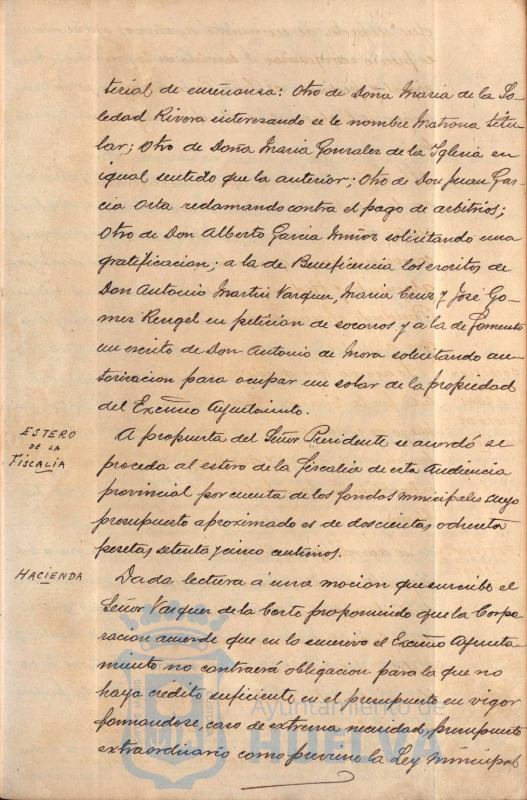 terial de enseñanza: Otro de Doña Maria de la So-
ledad Rivera interesando se le nombre Matrona titu-
lar; Otro de Doña Maria Gonzalez de la Iglesia en
igual sentido que la anterior; Otro de Don Juan Gar-
cia Orta reclamando contra el pago de arbitrios;
Otro de Don Alberto Garcia Muñoz solicitando una
gratificacion; a la de Beneficencia los escritos de
Don Antonio Martin Vazquez, Maria Cruz y José Go-
mez Rengel en peticion de socorros y a la de Fomento
un escrito de Don Antonio de Mora solicitando au-
torizacion para ocupar un solar de la propiedad
del Excmo Ayuntamiento.
ESTERO
DE LA
FISCALIA
A propuesta del Señor Presidente se acordó se
proceda al estero de la Fiscalia de esta Audiencia
provincial por cuenta de los fondos municipales cuyo
presupuesto aproximado es de doscientas ochenta
pesetas setenta y cinco centimos.
HACIENDA
Dada lectura á una mocion que suscribe el
Señor Vazquez de la Corte proponiendo que la Corpo-
racion acuerde que en lo sucesivo el Excmo Ayunta-
miento no contraerá obligacion para la que no
haya crédito suficiente en el presupuesto en vigor
formandose, caso de extrema necesidad, presupuesto
extraordinario como previene la Ley Municipal
Ayuntamiento de
HUELVA